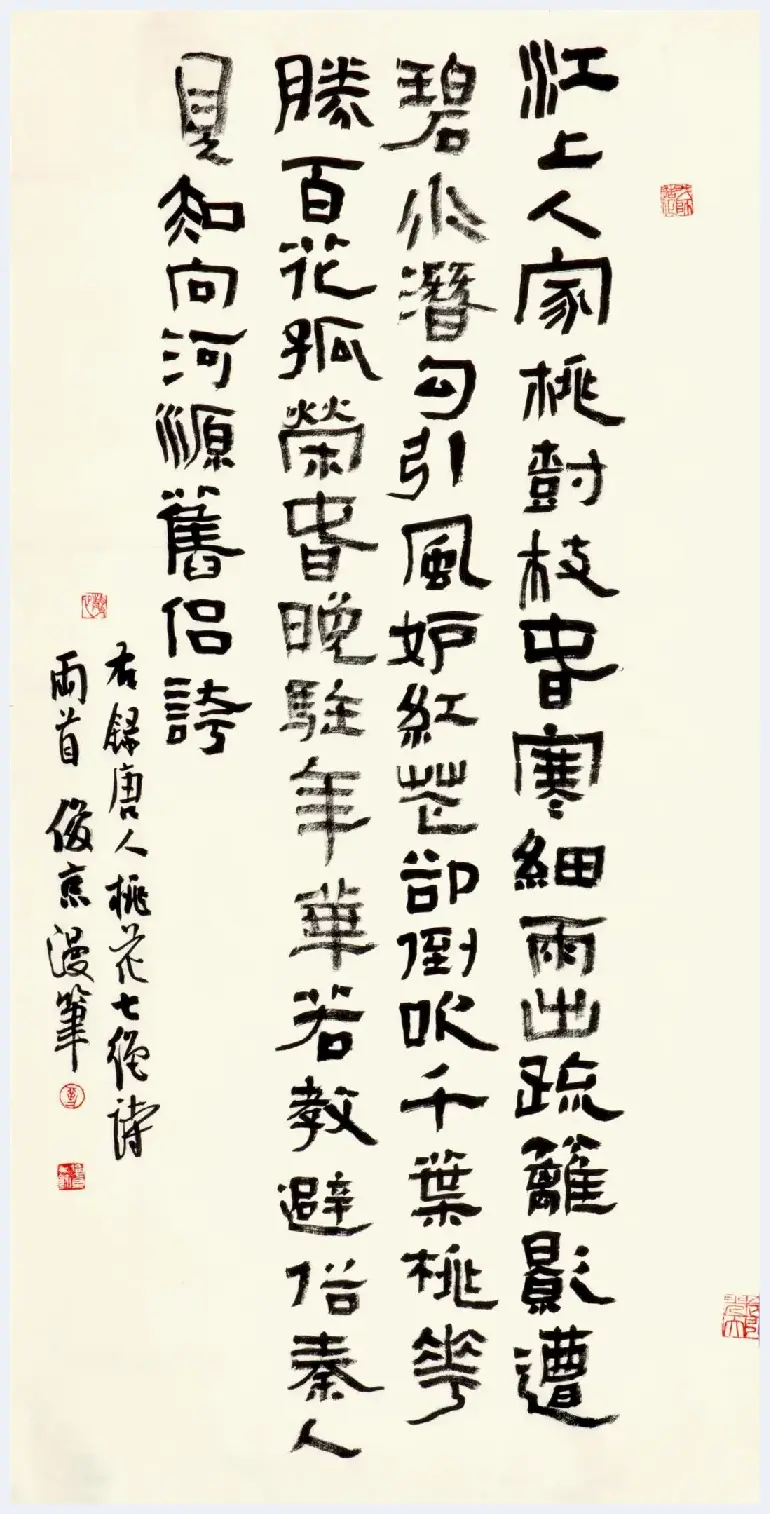 江上人家桃樹枝旾寒細雨出疏籬影遭
碧水潛勾引風妒紅花卻倒吹千葉桃花
勝百花孤榮旾晚駐年華若教避俗秦人
見知向河源舊侶誇
右錄唐人桃花七絕詩
兩首 俊京漫筆